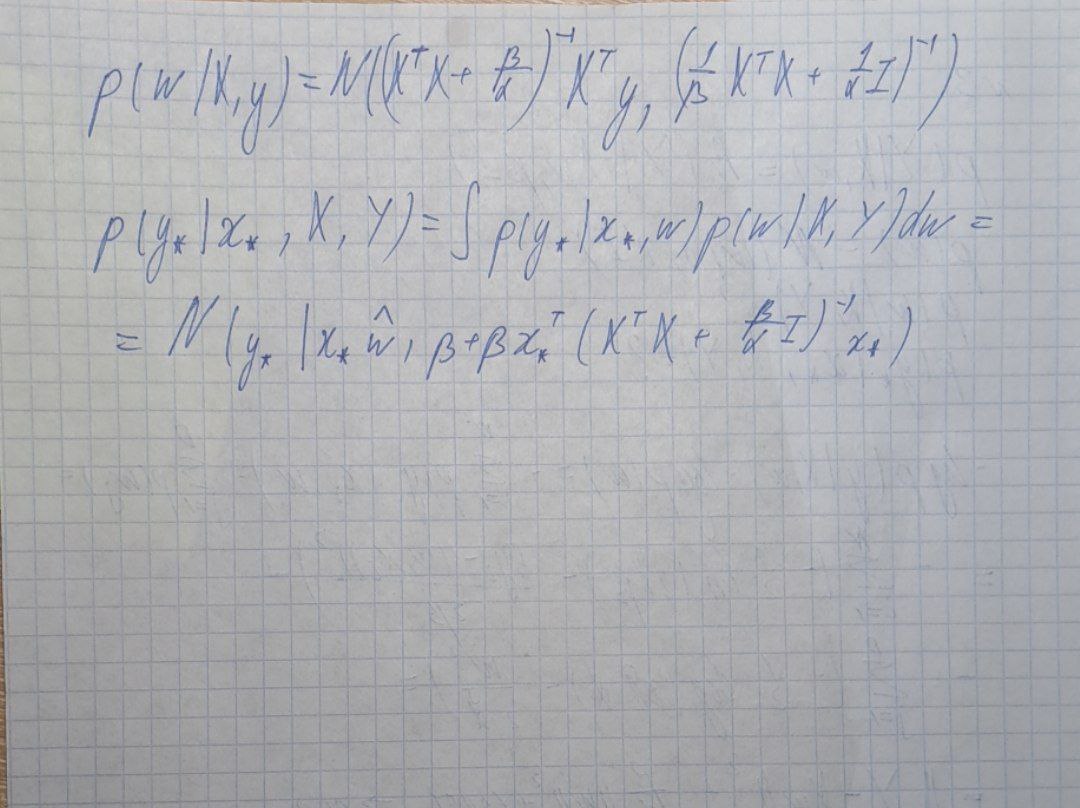 p(w|X,y)=N((XᵀX+ β/α)⁻¹Xᵀy, (1/β XᵀX + 1/α I)⁻¹)
p(y*|x*, X, Y)=∫p(y*|x*,w)p(w|X,Y)dw =
= N(y*|x*ŵ, β+βx*ᵀ(XᵀX + β/α I)⁻¹x*)